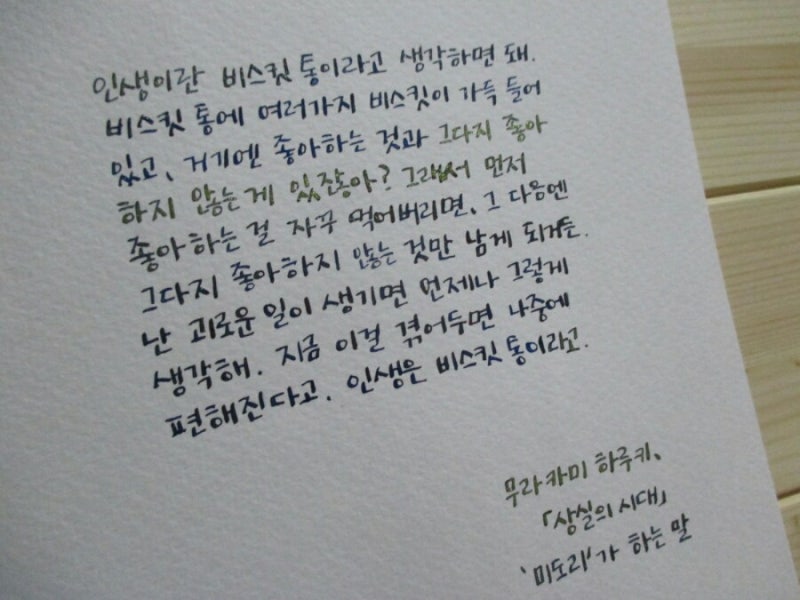 인생이란 비스킷 통이라고 생각하면 돼.
비스킷 통에 여러가지 비스킷이 가득 들어
있고, 거기엔 좋아하는 것과 그다지 좋아
하지 않는게 있잖아? 그래서 먼저
좋아하는 걸 자꾸 먹어버리면, 그 다음엔
그다지 좋아하지 않는 것만 남게 되거든.
난 괴로운 일이 생기면 언제나 그렇게
생각해. 지금 이걸 겪어두면 나중에
편해진다고. 인생은 비스킷 통이라고.
무라카미 하루키,
「상실의 시대」
'미도리'가 하는 말